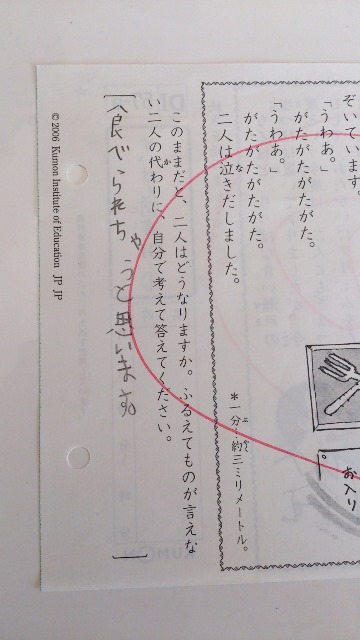 ぞいています。
「うわあ。」
がたがたがたがた。
「うわあ。」
がたがたがたがた。
二人は泣きだしました。
な
*一分…約三ミリメートル。
お入り
このままだと、二人はどうなりますか。ふるえてものが言えな
い二人の代わりに、自分で考えて答えてください。
か
食べられちゃうと思います。
© 2006 Kumon Institute of Education JP JP